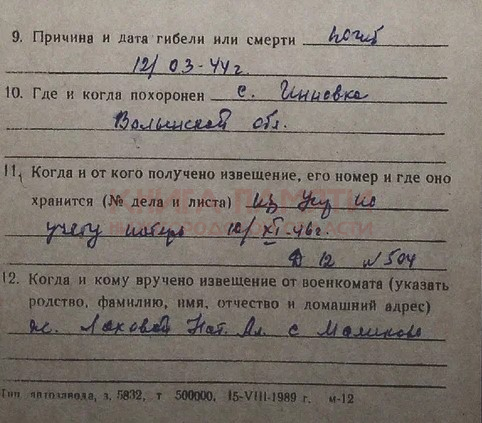 9. Причина и дата гибели или смерти погиб
12/ 03-44 г.
10. Где и когда похоронен с. Линновка
Волынской обл.
11. Когда и от кого получено извещение, его номер и где оно
хранится (№ дела и листа) из Упр по
учету потерь 12/ XI-46 г.
Д 12 № 504
12. Когда и кому вручено извещение от военкомата (указать
родство, фамилию, имя, отчество и домашний адрес)
ж. Лаховой Нат. Ал. с Малиново
Тип автозавода, з. 5832, т 500000, 15-VIII-1989 г. м-12
КНИГА ПАМЯТИ